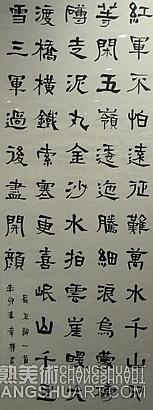 紅軍不怕遠征難萬水千山只
等閑五嶺逶迤騰細浪烏蒙磅
礴走泥丸金沙水拍雲崖暖大
渡橋橫鐵索寒更喜岷山千里
雪三軍過後盡開顏
辛卯